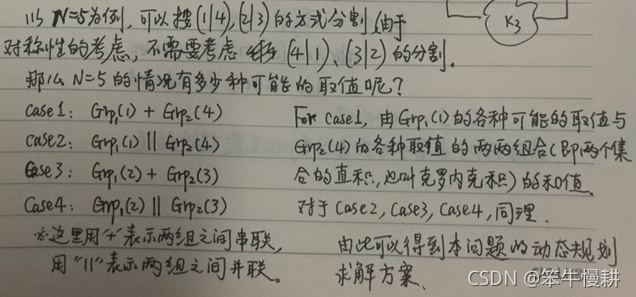 以N=5为例,可以按(1|4),(2|3)的方式分割,由于
对称性的考虑,不需要考虑(4|1)、(3|2)的分割.
那么N=5的情况有多少种可能的取值呢?
Case1: Grp₁(1) + Grp₂(4)
Case2: Grp₁(1) || Grp₂(4)
Case3: Grp₁(2) + Grp₂(3)
Case4: Grp₁(2) || Grp₂(3)
※这里用"+"表示两组之间串联,
用"||"表示两组之间并联。
For case1, 由Grp₁(1)的各种可能的取值与
Grp₂(4)的各种取值的两两组合(即两个集
合的直积,也叫克罗内克积)的和值.
对于Case2, Case3, Case4, 同理.
由此可以得到本问题的动态规划
求解方案.
K₃
CSDN @笨牛慢耕